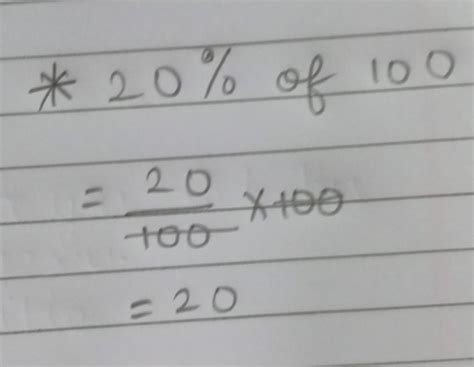 * 20% of 100
= 20/100 × 100
= 20